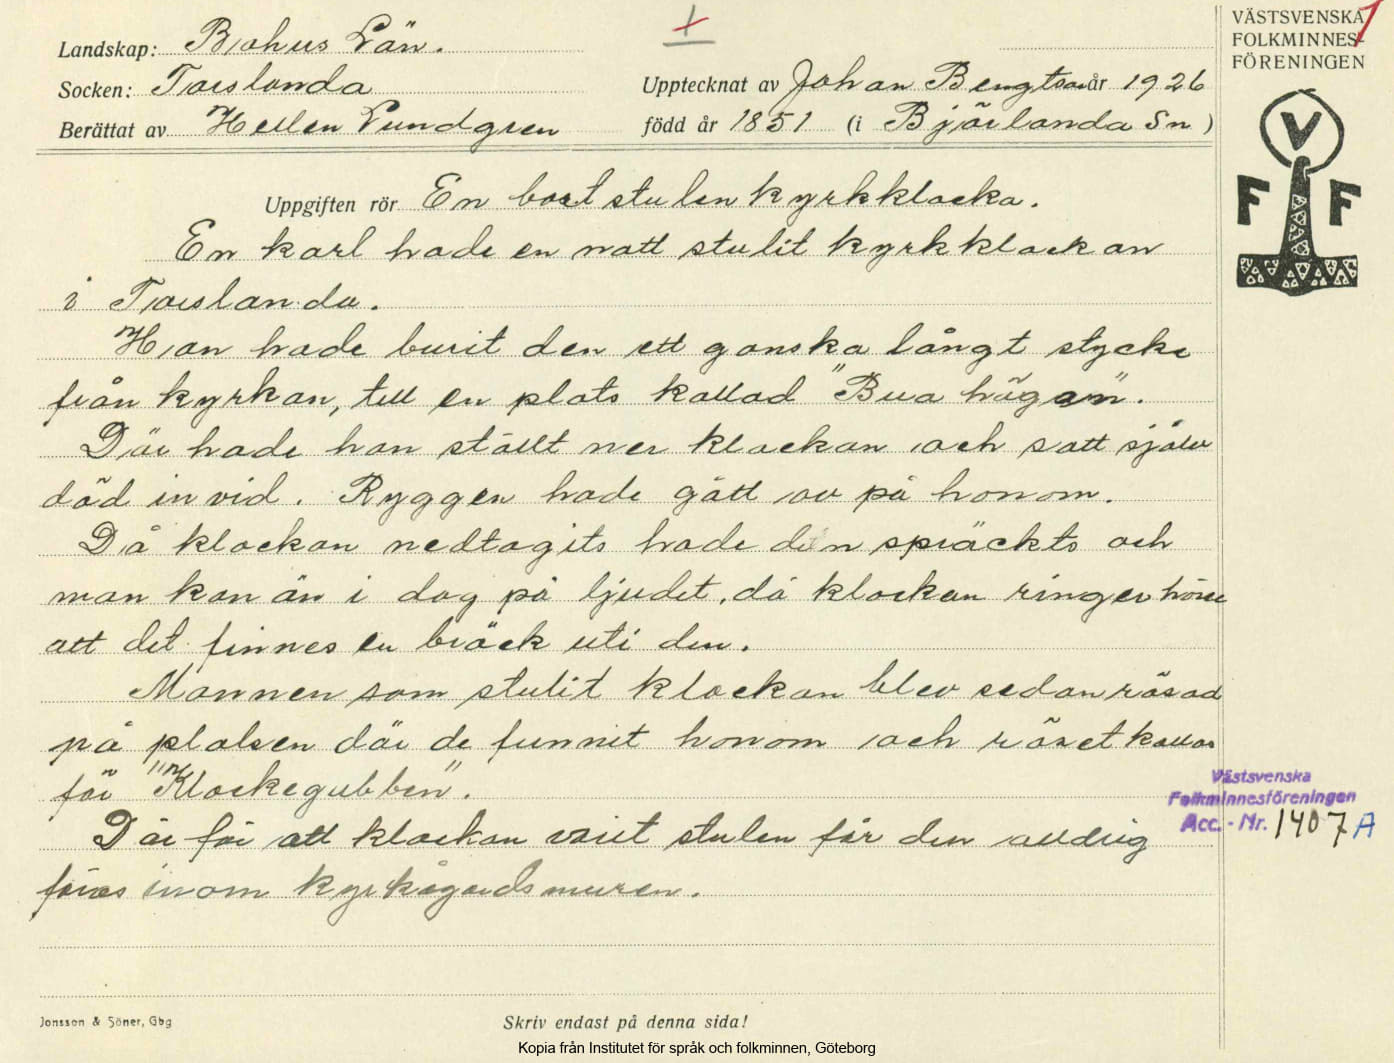 VÄSTSVENSKA
FOLKMINNES-
FÖRENINGEN
V
F F
Landskap: Bohus Län.
Socken: Torslanda
Upptecknat av Johan Bengtson år 1926
Berättat av Hellen Lundgren
född år 1851 (i Björlanda Sn)
Uppgiften rör En bortstulen kyrkklocka.
En karl hade en natt stulit kyrkklockan
i Torslanda.
Han hade burit den ett ganska långt stycke
från kyrkan, till en plats kallad "Bua högen".
Där hade han ställt ner klockan och satt själv
död invid. Ryggen hade gått av på honom.
Då klockan nedtagits hade den spräckts och
man kan än i dag på ljudet, då klockan ringer höra
att det finnes en bräck uti den.
Mannen som stulit klockan blev sedan rösad
på platsen där de funnit honom och röset kallas
för "Klockegubben".
Där för att klockan varit stulen får den alldrig
föras inom kyrkogårdsmuren.
Västsvenska
Folkminnesföreningen
Acc. - Nr. 1407 A
Jonsson & Söner, Gbg
Skriv endast på denna sida!
Kopia från Institutet för språk och folkminnen, Göteborg